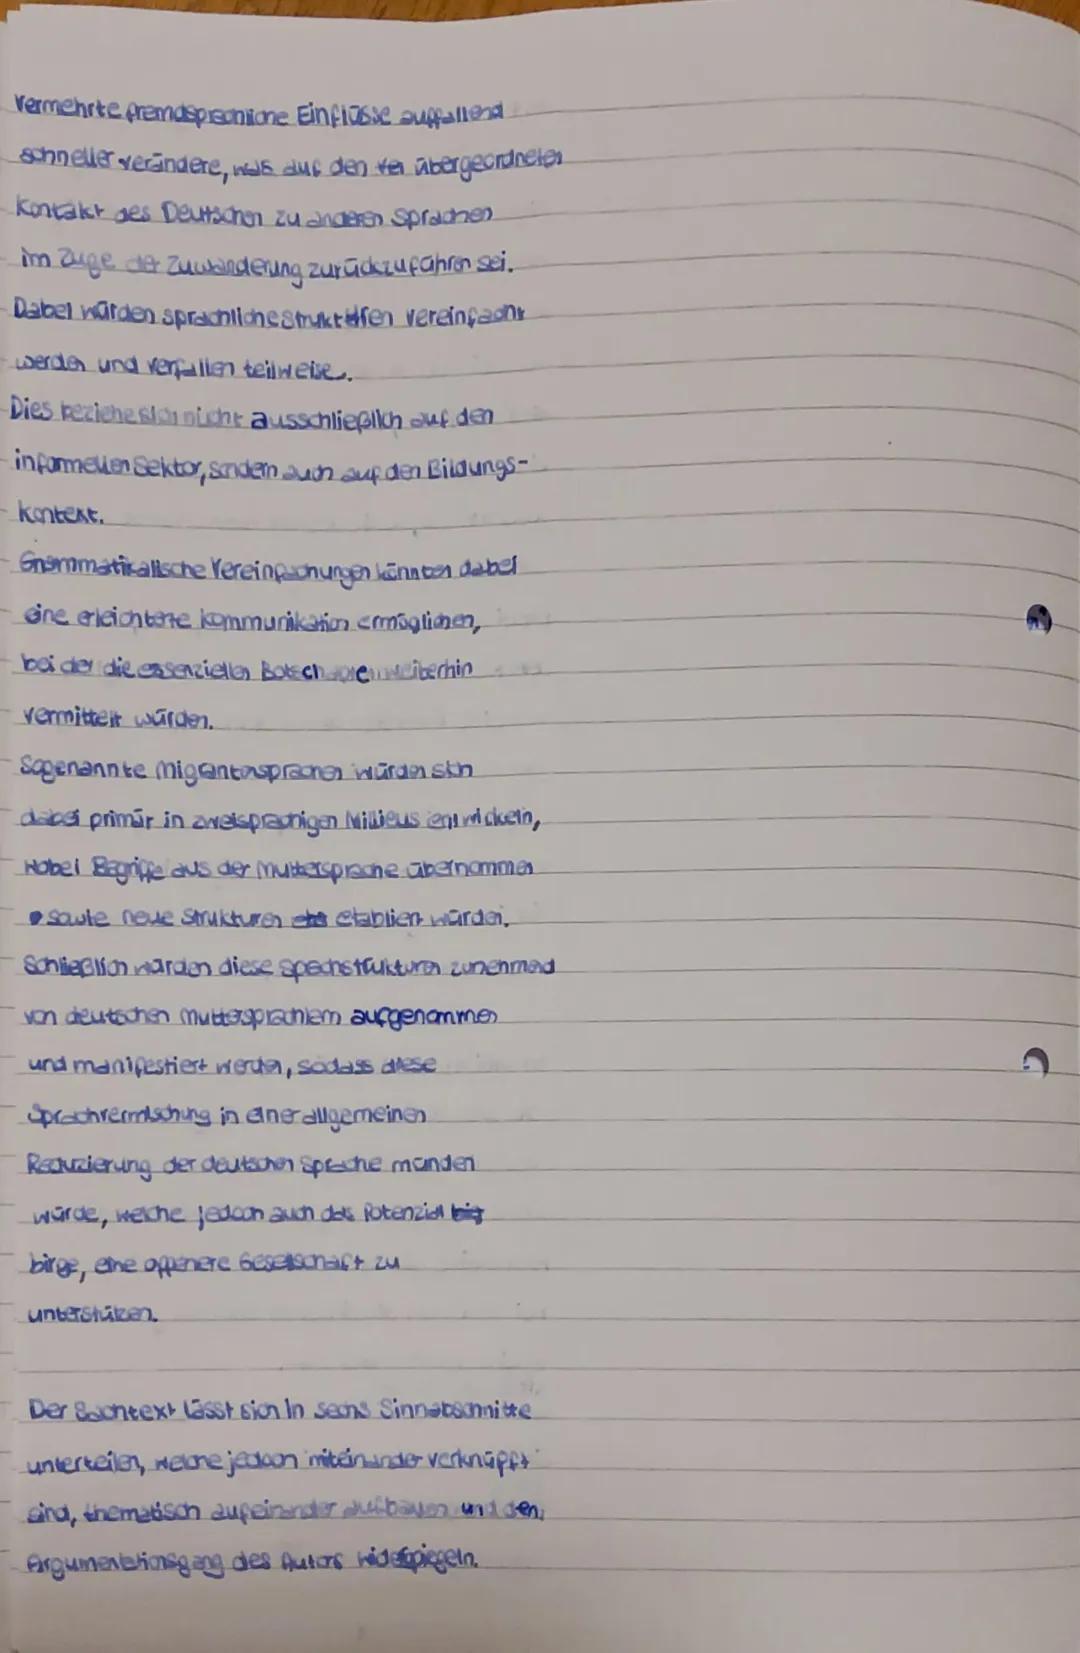 Vermehrte fremdsprachliche Einflüsse auffallend
schneller verändere, was auf den übergeordneten
Kontakt des Deutschen zu anderen Sprachen
im Zuge der Zuwanderung zurückzuführen sei.
Dabei würden sprachliche Strukturen vereinfacht
werden und verfallen teilweise.
Dies beziehe sich nicht ausschließlich auf den
informellen Sektor, sondern auch auf den Bildungs-
kontext.
Grammatikalische Vereinfachungen könnten dabei
eine erleichterte Kommunikation ermöglichen,
bei der die essenziellen Botschaften weiterhin
vermittelt würden.
Sogenannte Migrantensprachen würden sich
dabei primär in zweisprachigen Milieus entwickeln,
wobei Begriffe aus der Muttersprache übernommen
sowie neue Strukturen etabliert würden.
Schließlich würden diese Spechstrukturen zunehmend
von deutschen Muttersprachlern aufgenommen
und manifestiert werden, sodass diese
Sprachvermischung in einer allgemeinen
Reduzierung der deutschen Sprache münden
würde, welche jedoch auch das Potenzial
birge, eine offenere Gesellschaft zu
unterstüzen.
Der Sachtext lässt sich in sechs Sinnabschnitte
unterteilen, welche jedoch miteinander verknüpft
sind, thematisch aufeinander aufbauen und den
Argumentationsgang des Autors widerspiegeln.